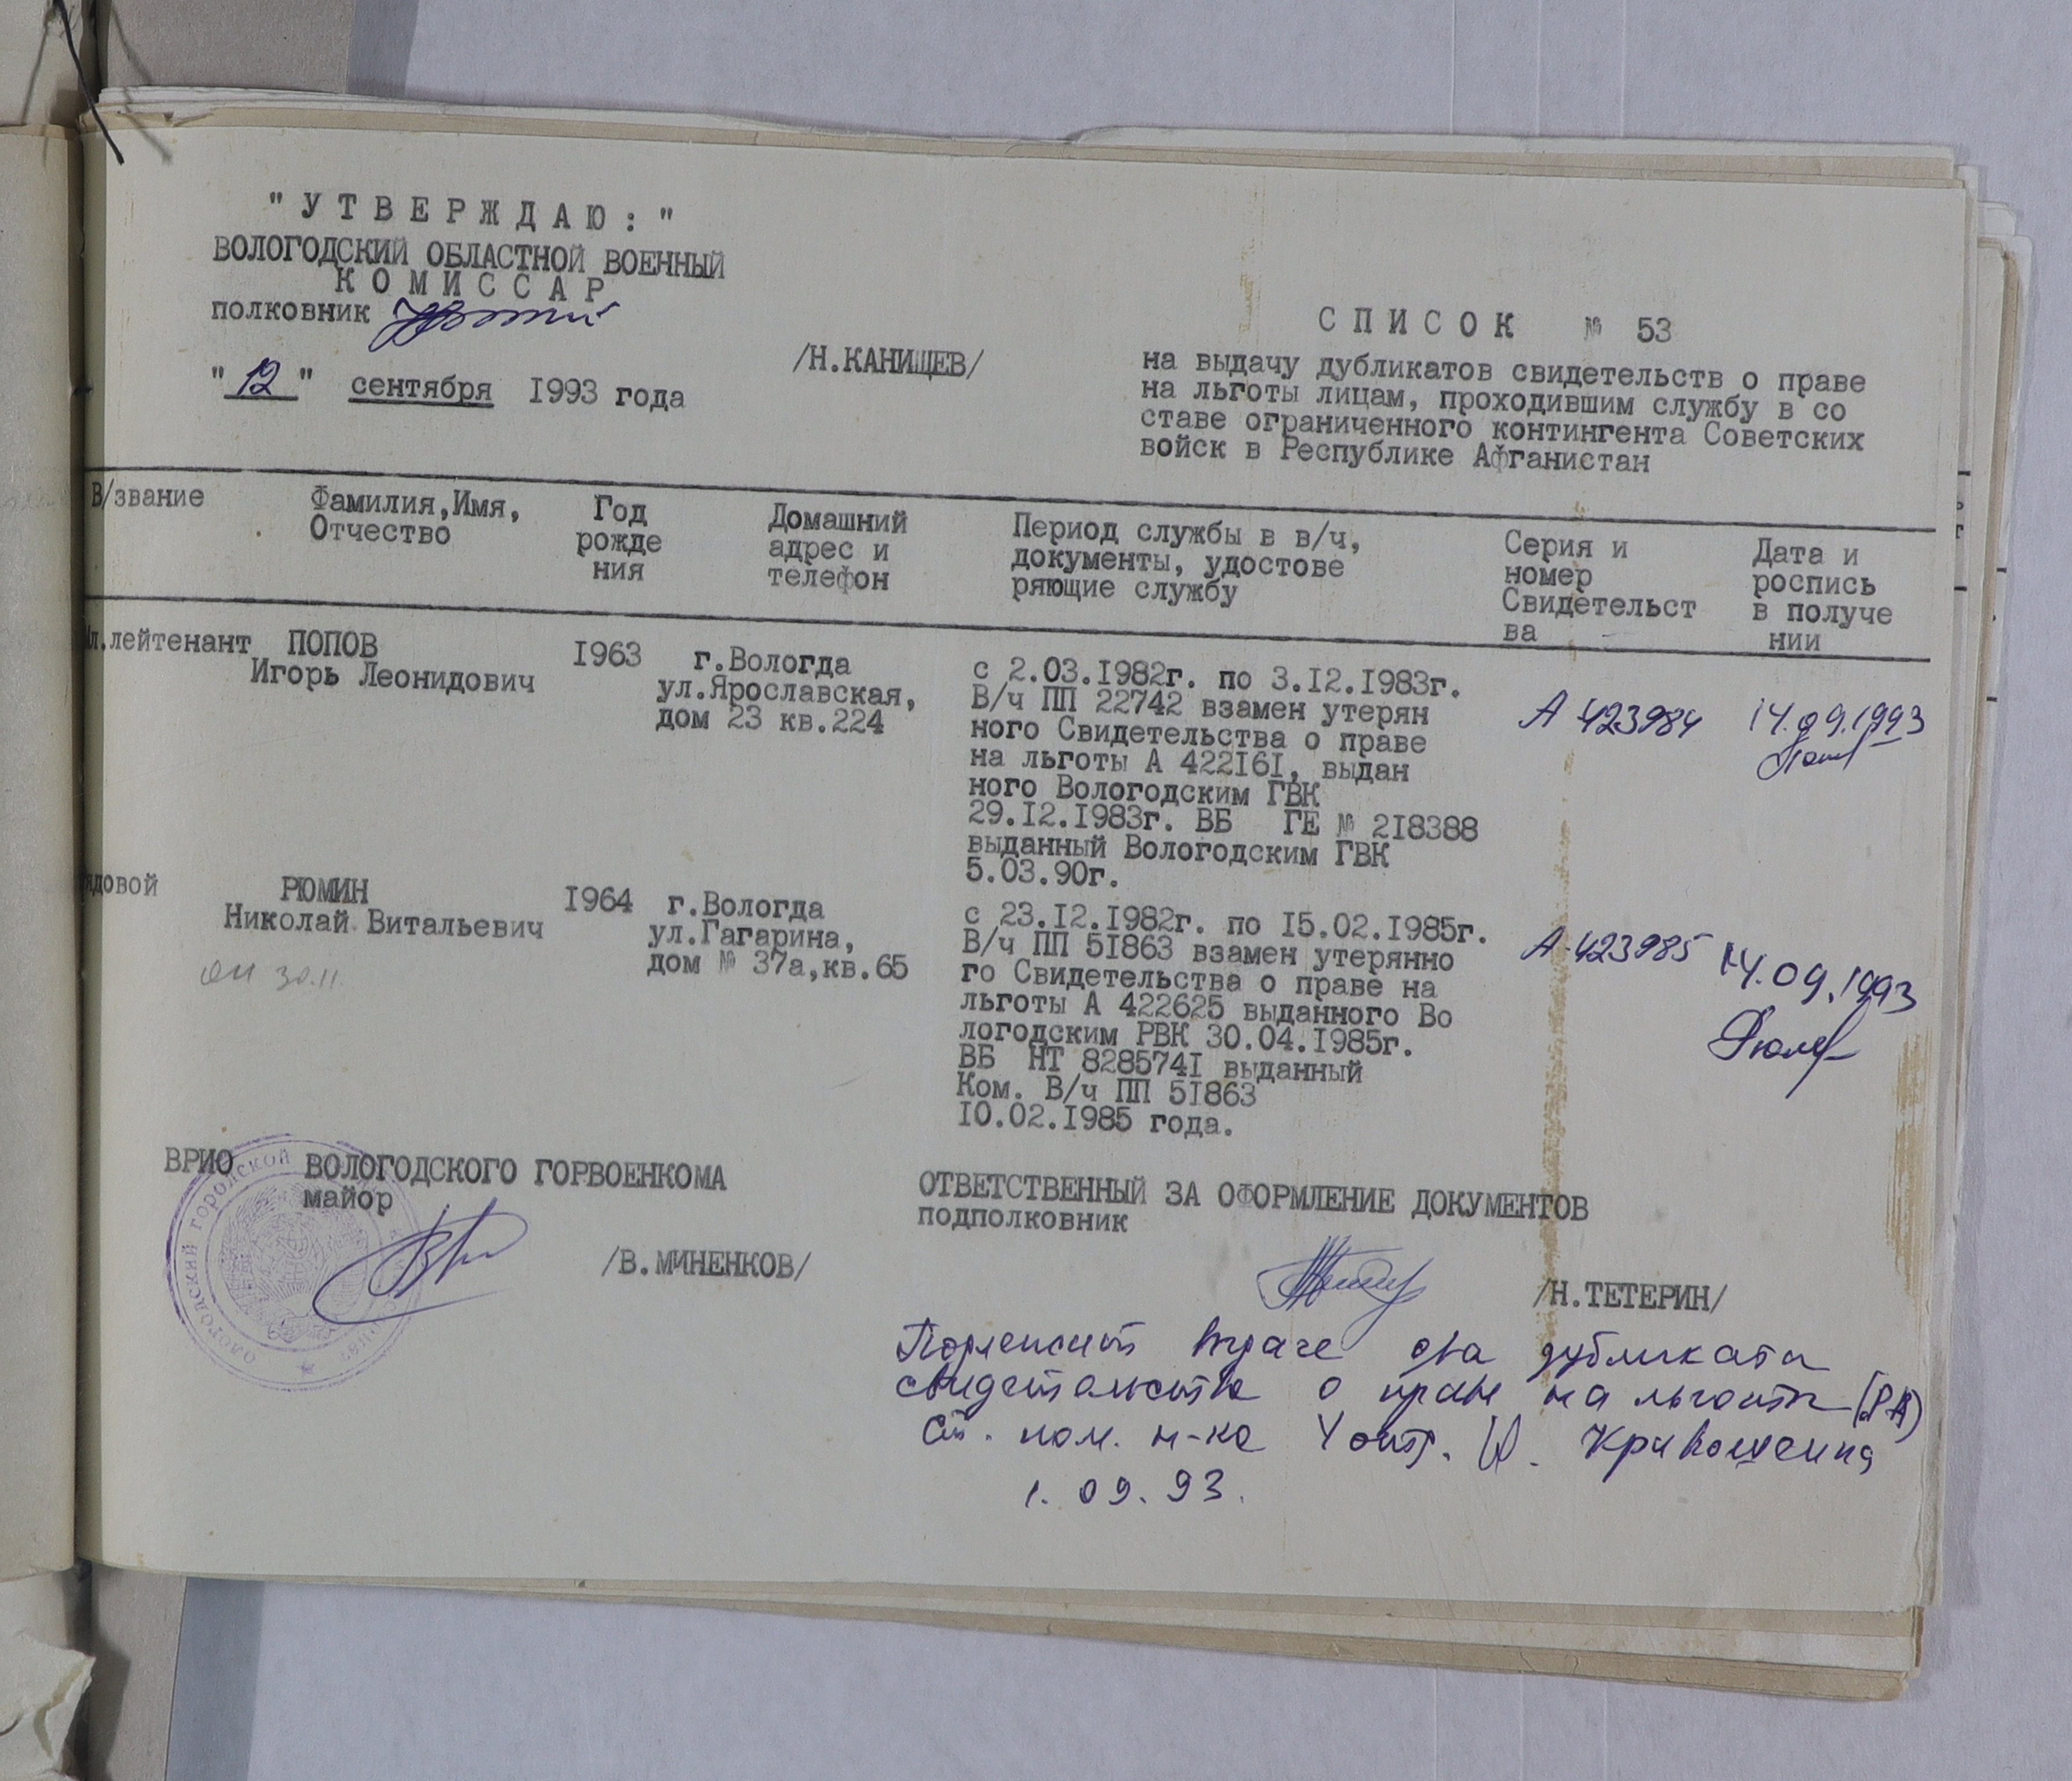 "УТВЕРЖДАЮ:"
ВОЛОГОДСКИЙ ОБЛАСТНОЙ ВОЕННЫЙ
КОМИССАР
полковник
/Н.КАНИЩЕВ/
"12" сентября 1993 года
СПИСОК № 53
на выдачу дубликатов свидетельств о праве
на льготы лицам, проходившим службу в со
ставе ограниченного контингента Советских
войск в Республике Афганистан
В/звание
Фамилия,Имя,
Отчество
Год
рожде
ния
Домашний
адрес и
телефон
Период службы в в/ч,
документы, удостове
ряющие службу
Серия и
номер
Свидетельст
ва
Дата и
роспись
в получе
нии
л.лейтенант
ПОПОВ
Игорь Леонидович
1963
г.Вологда
ул.Ярославская,
дом 23 кв.224
с 2.03.1982г. по 3.12.1983г.
В/ч ПП 22742 взамен утерян
ного Свидетельства о праве
на льготы А 422161, выдан
ного Вологодским ГВК
29.12.1983г. ВБ ГЕ № 218388
выданный Вологодским ГВК
5.03.90г.
А 423984
14.09.1993
ядовой
РЮМИН
Николай Витальевич
30.11.
1964
г.Вологда
ул.Гагарина,
дом № 37а,кв.65
с 23.12.1982г. по 15.02.1985г.
В/ч ПП 51863 взамен утерянно
го Свидетельства о праве на
льготы А 422625 выданного Во
логодским РВК 30.04.1985г.
ВБ НТ 8285741 выданный
Ком. В/ч ПП 51863
10.02.1985 года.
А-423985
14.09.1993
ВРИО ВОЛОГОДСКОГО ГОРВОЕНКОМА
майор
/В.МИНЕНКОВ/
ОТВЕТСТВЕННЫЙ ЗА ОФОРМЛЕНИЕ ДОКУМЕНТОВ
подполковник
/Н.ТЕТЕРИН/
Подлежит выдаче два дубликата
свидетельства о праве на льготы (РА)
Ст. пом. н-ка 4 отд. Кривошеина
1.09.93.